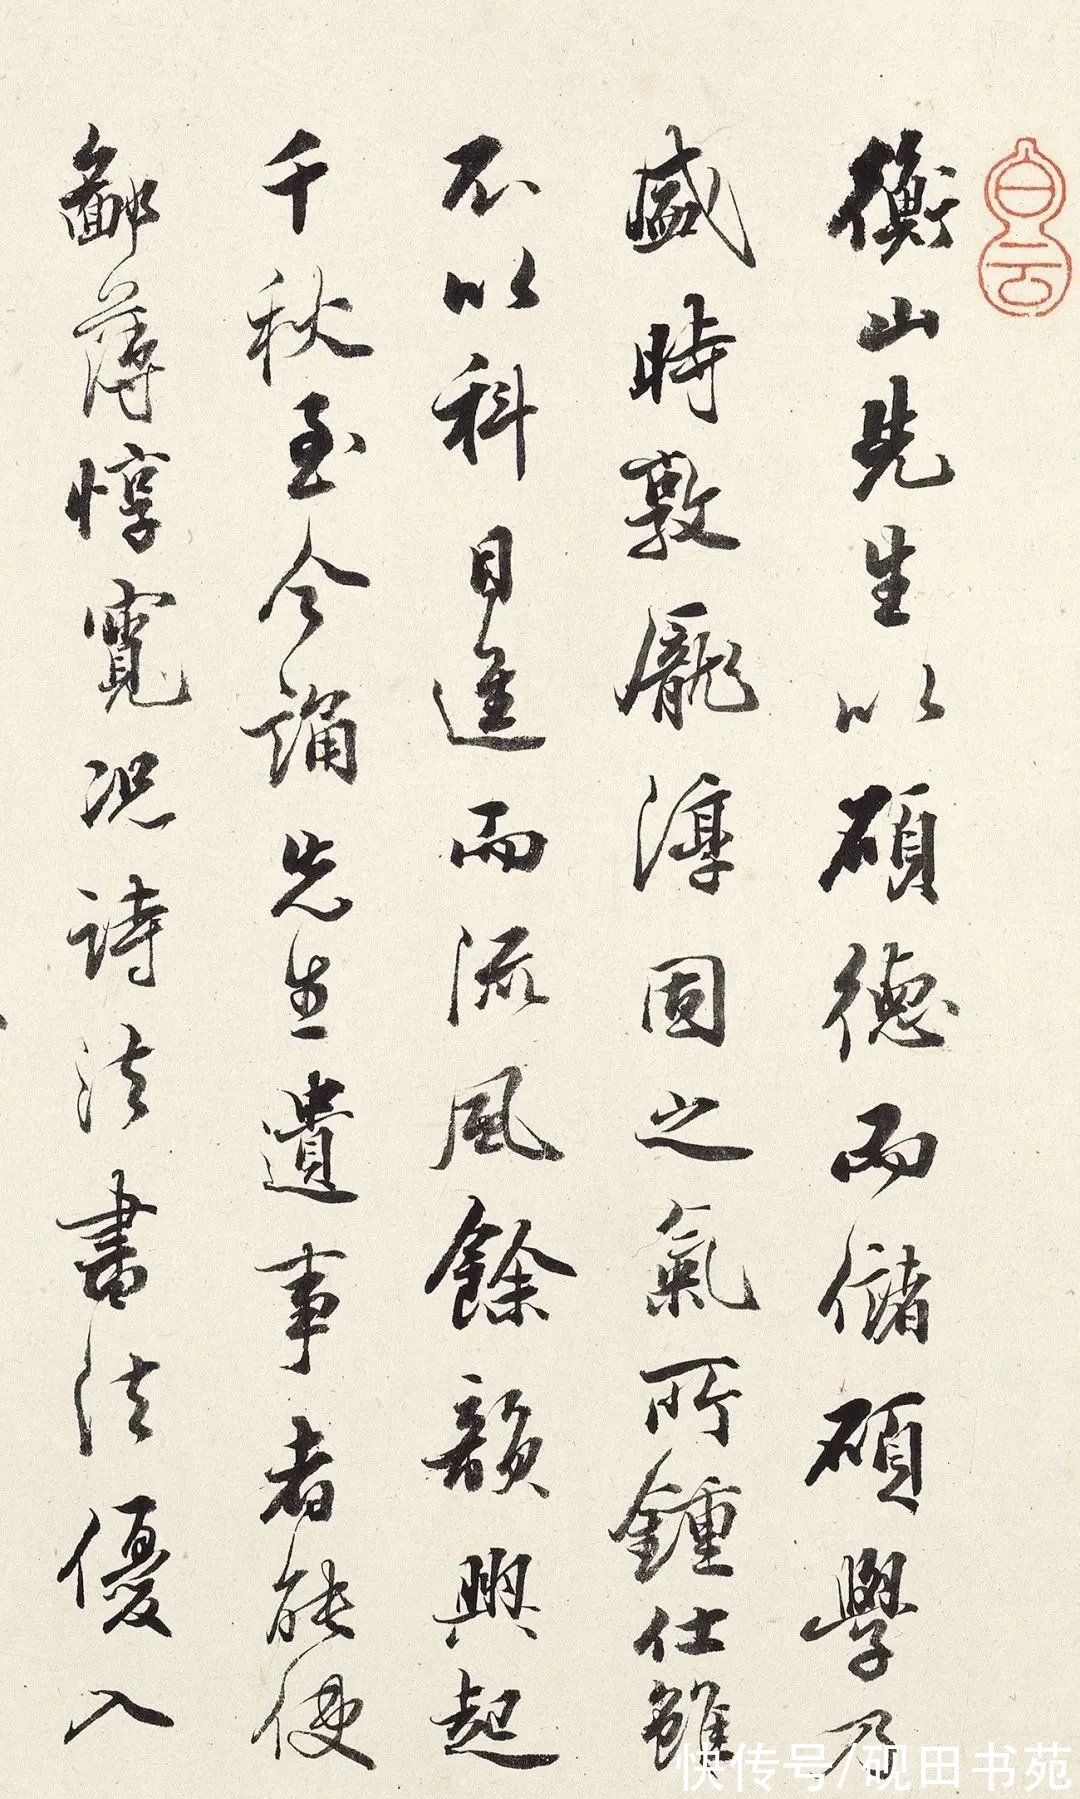 白云
衡山先生以碩德而儲碩學乃
盛時敦龐淳固之氣所鍾仕雖
不以科目進而流風餘韻興起
千秋至今誦先生遺事者能使
鄙薄惇寬況詩法書法優入
快传号/砚田书苑